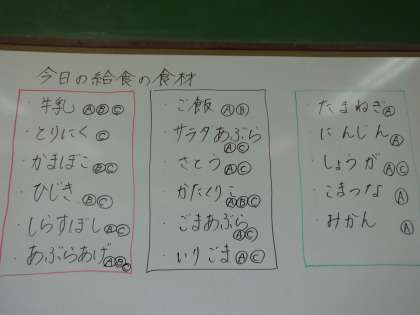 今日の給食の食材
・牛乳 ⒶⒷⒸ
・とりにく Ⓒ
・かまぼこ ⒷⒸ
・ひじき ⒷⒸ
・しらすぼし ⒶⒸ
・あぶらあげ ⒶⒷⒸ
・ご飯 ⒶⒷ
・サラダあぶら ⒶⒸ
・さとう ⒶⒸ
・かたくりこ ⒶⒷⒸ
・ごまあぶら ⒶⒸ
・いりごま ⒶⒸ
・たまねぎ Ⓐ
・にんじん Ⓐ
・しょうが ⒶⒸ
・こまつな Ⓐ
・みかん Ⓐ